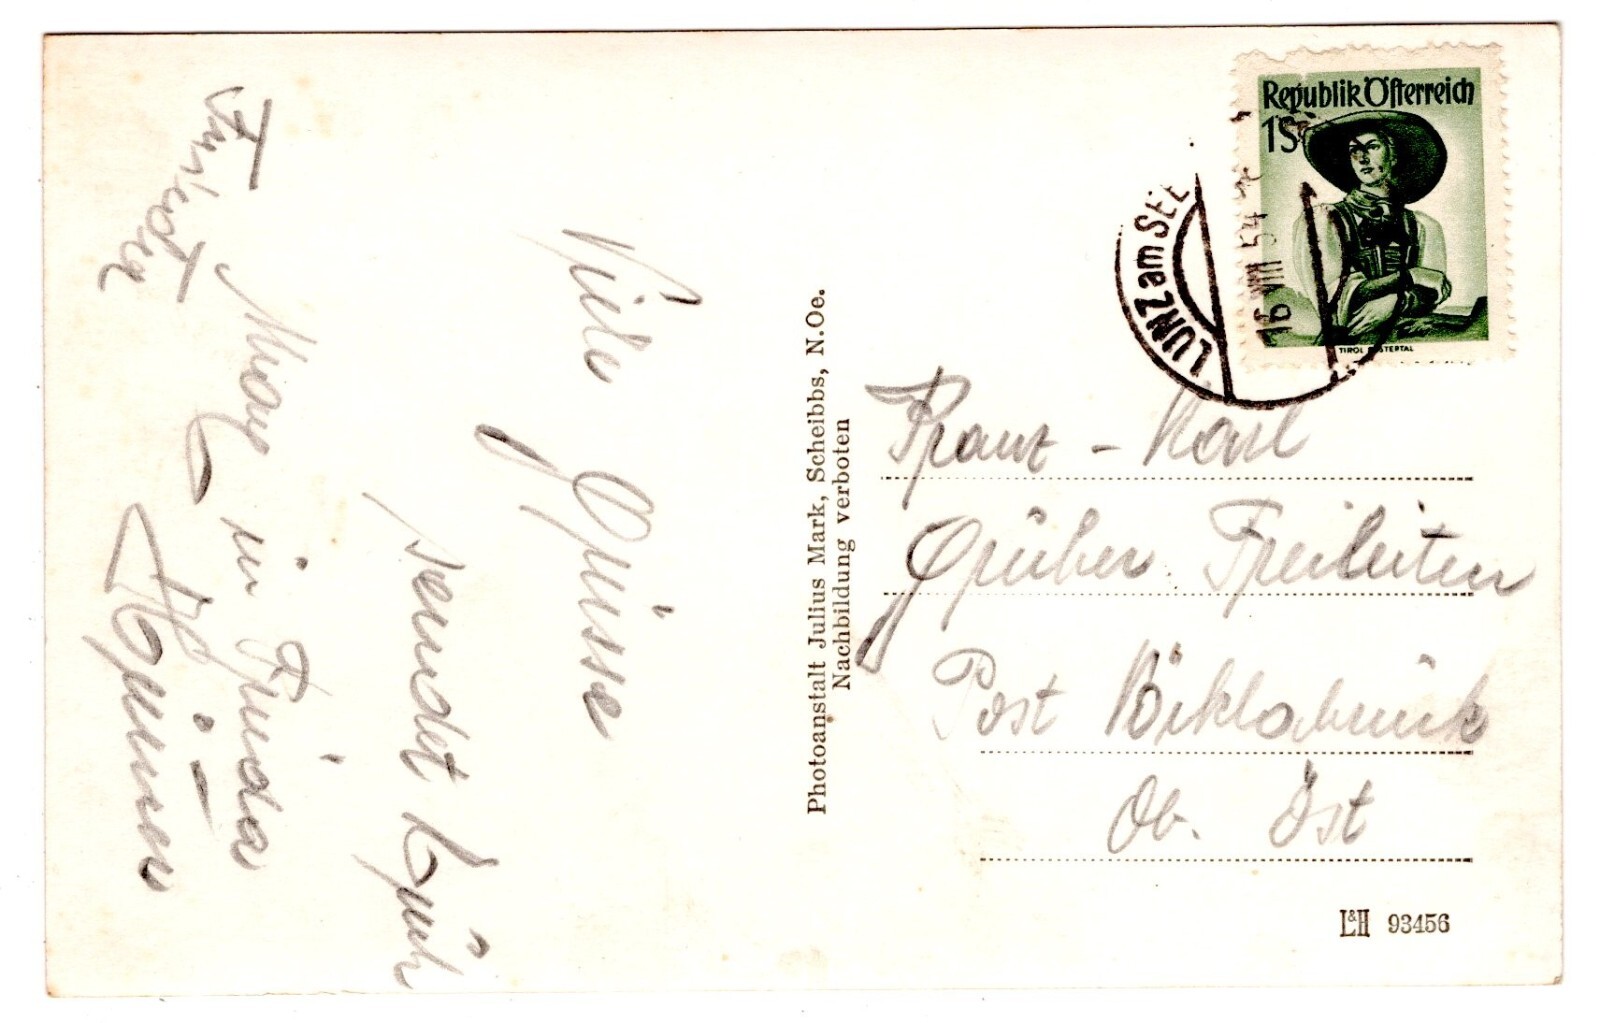 Viele Grüsse
sendet Euch
Mary in
Photoanstalt Julius Mark, Scheibbs, N.Oe.
Nachbildung verboten
Republik Österreich
1S
TIROL PUSTERTAL
LUNZ am SEE
16 VIII 54
Franz - Karl
Grüber Freileiten
Post
Ob. Öst
L&H 93456